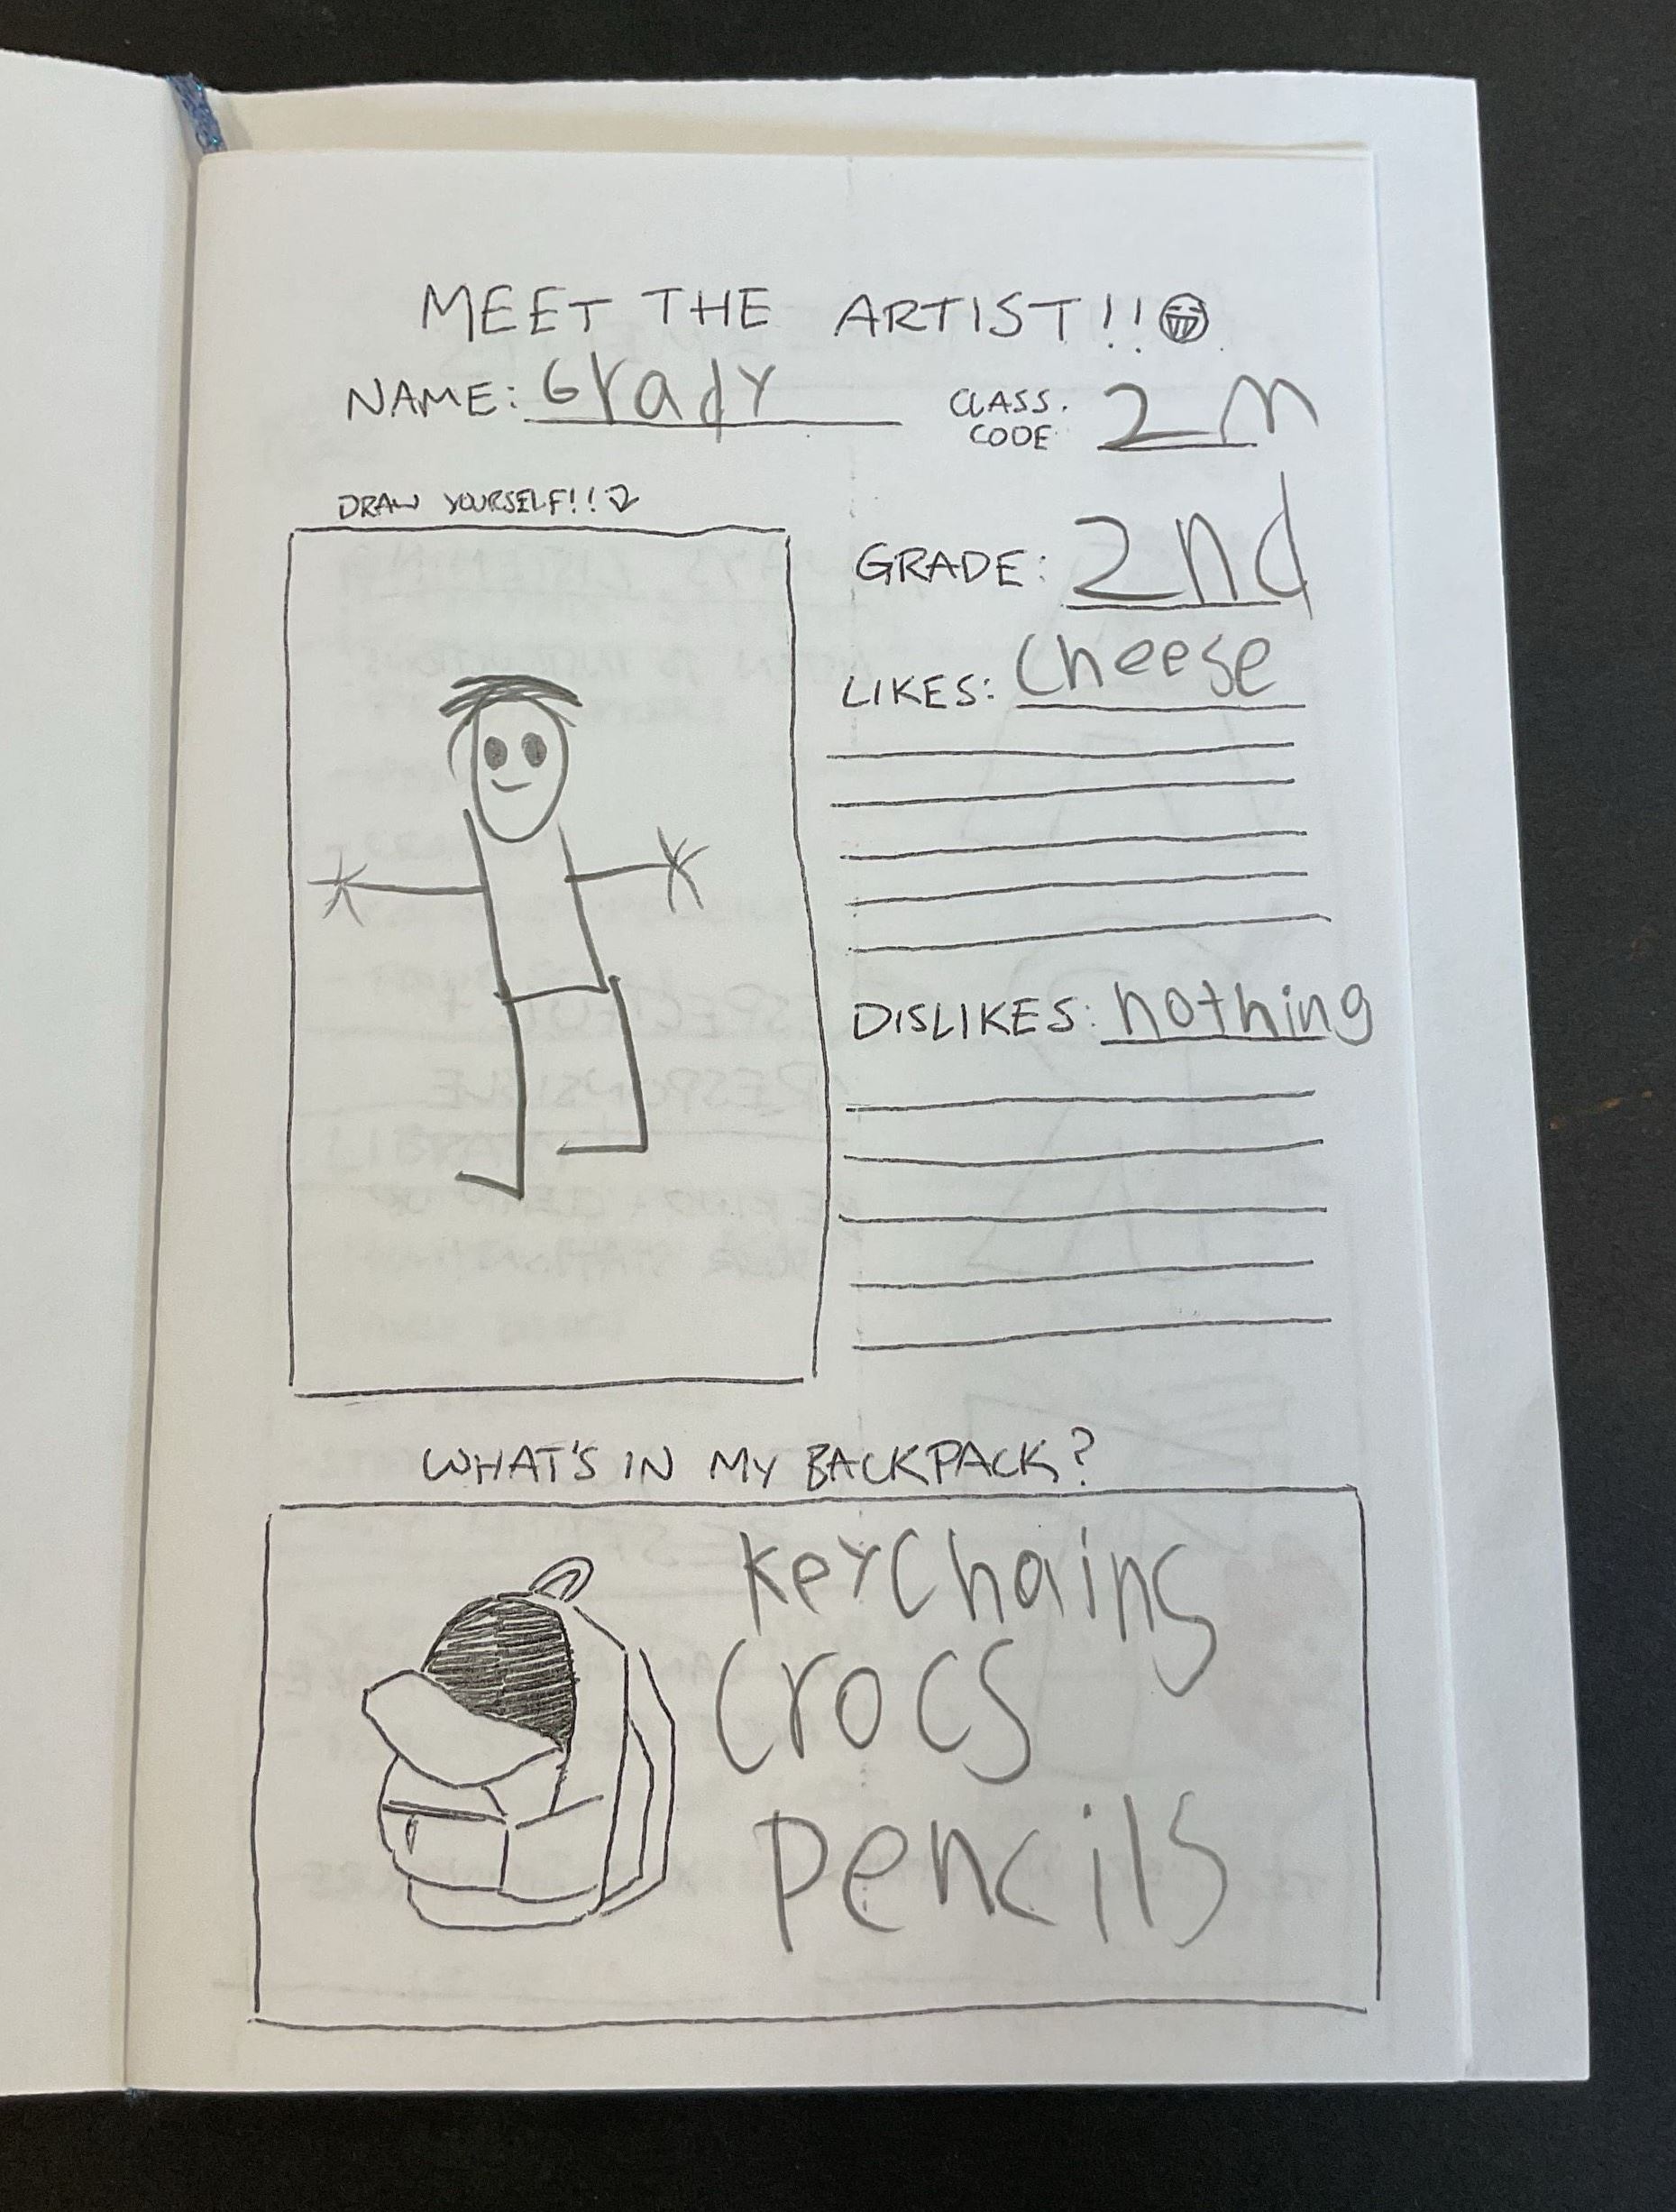 MEET THE ARTIST!!
NAME: Grady
CLASS CODE: 2 m
DRAW YOURSELF!!
GRADE: 2nd
LIKES: Cheese
DISLIKES: nothing
WHAT'S IN MY BACKPACK?
KeyChains
Crocs
Pencils